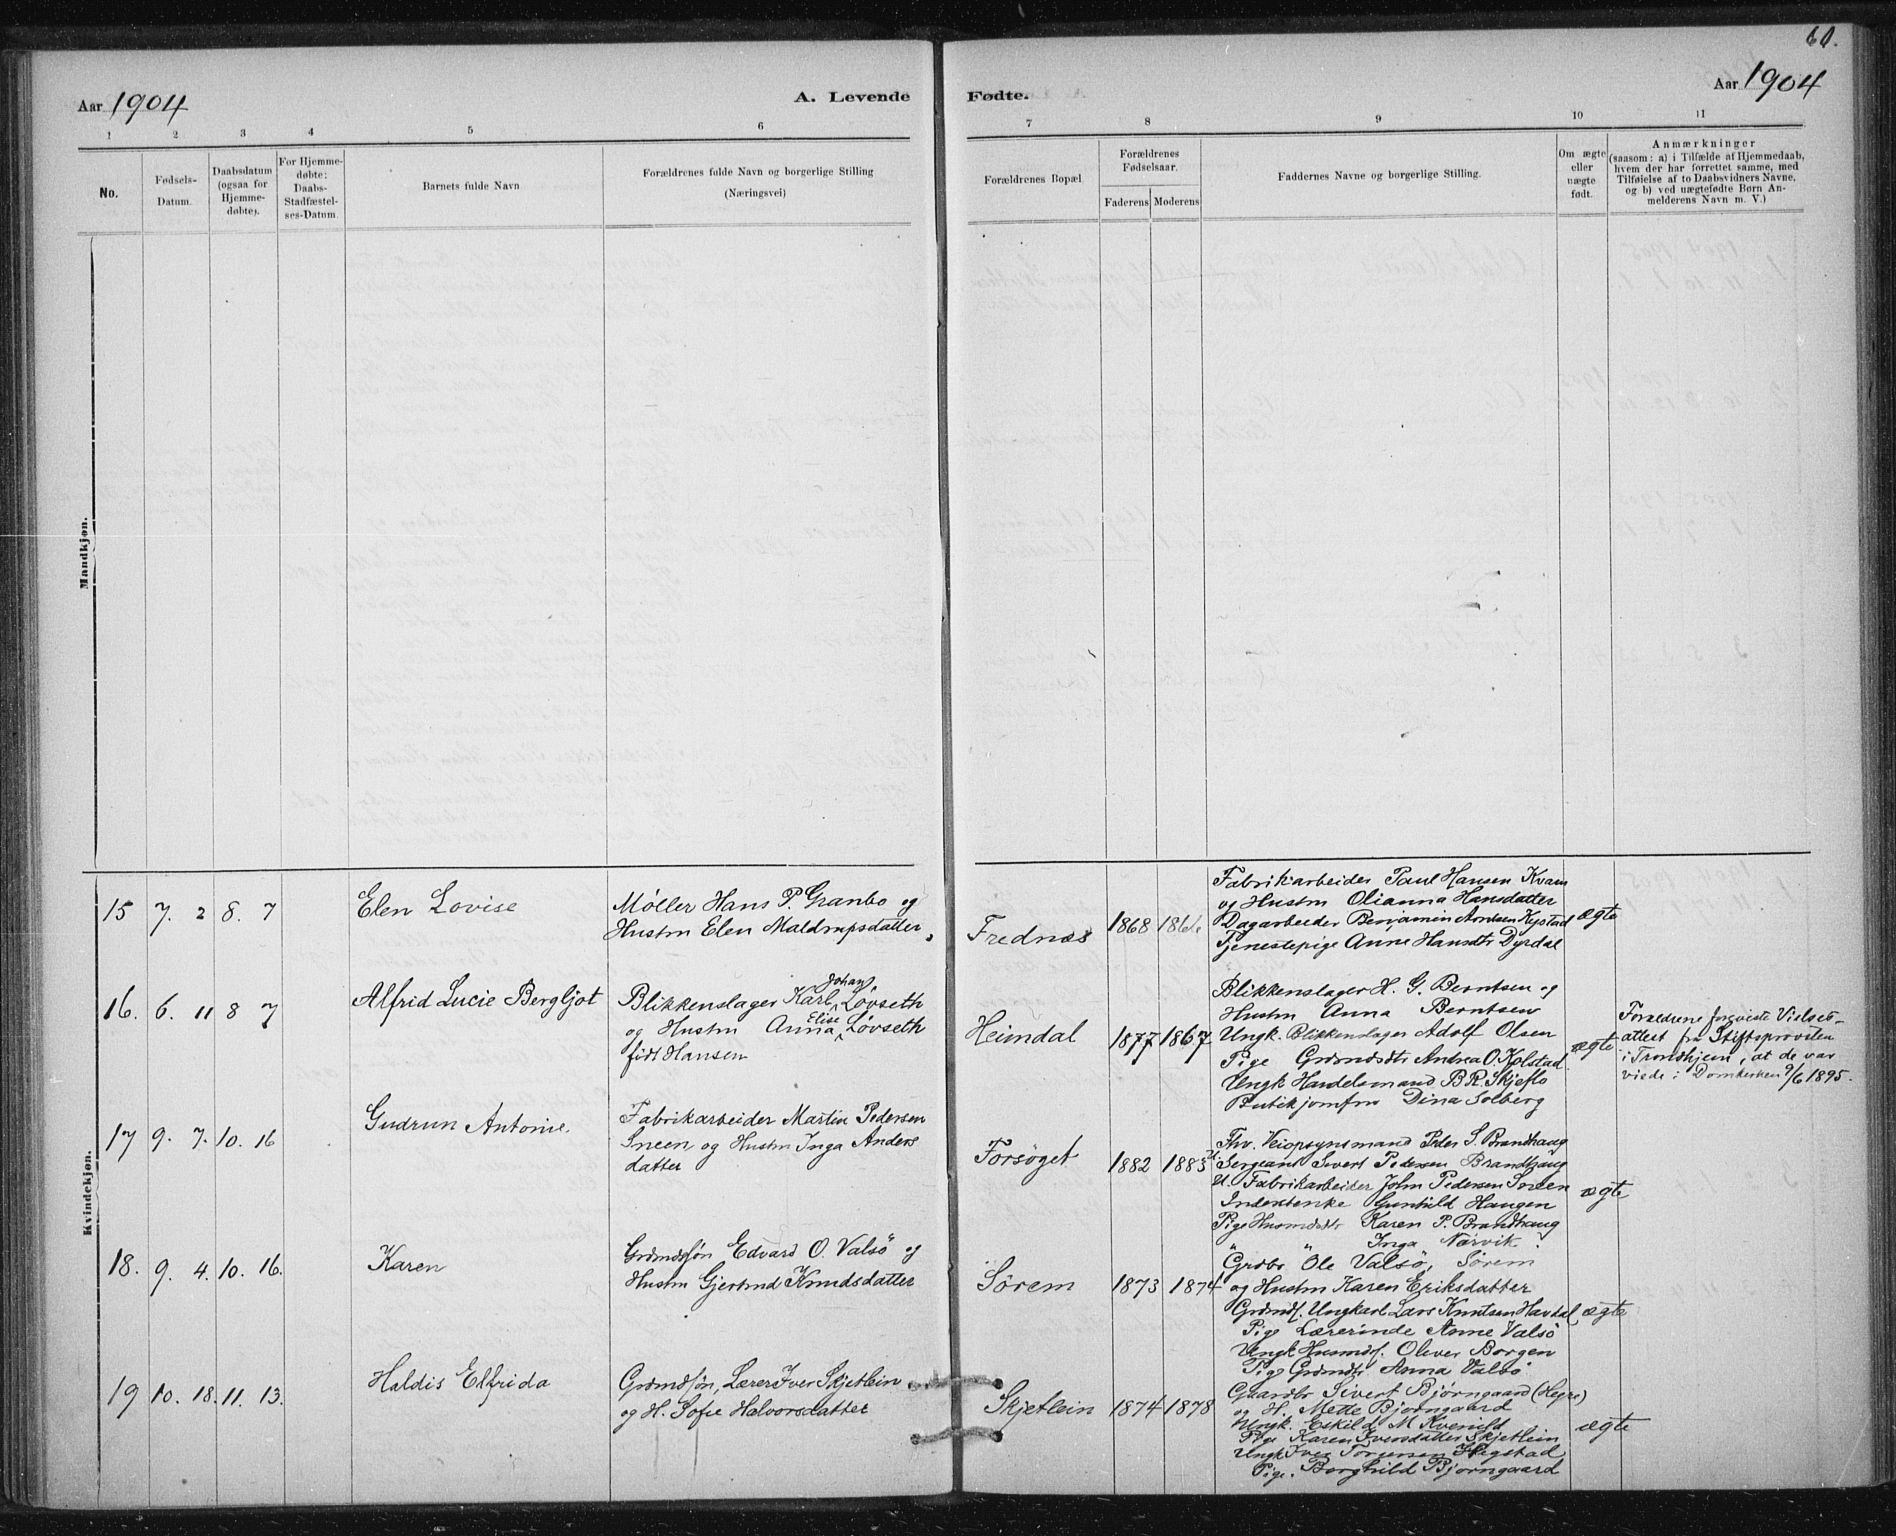 60.
Aar 1904
A. Levende
Fødte.
Aar 1904
1 2 3 4 5 6 7 8 9 10 11
No.
Fødsels-
Datum.
Daabsdatum
(ogsaa for
Hjemme-
døbte).
For Hjemme-
døbte:
Daabs-
Stadfæstel-
ses-Datum.
Barnets fulde Navn
Forældrenes fulde Navn og borgerlige Stilling
(Næringsvei)
Forældrenes Bopæl
Forældrenes
Fødselsaar.
Faderens
Moderens
Faddernes Navne og borgerlige Stilling.
Om ægte
eller
uægte
født.
Anmærkninger
(saasom: a) i Tilfælde af Hjemmedaab,
hvem der har forrettet samme, med
Tilføielse af to Daabsvidners Navne,
og b) ved uægtefødte Børn An-
melderens Navn m. V.)
Mandkjøn.
Kvindekjøn.
15 7. 2 8. 7
Elen Lovise
Møller Hans P. Granbo og
Hustru Elen Maldrupsdatter,
Frednæs
1868
Fabrikarbeider Paul Hansen Kvam
og Hustru Olianna Hansdatter
Dagarbeider Benjamin Arntsen Kystad
Tjenestepige Anne Hansdtr Dyrdal
ægte
16. 6. 11 8 7
Alfrid Lucie Bergljot
Blikkenslager Karl Johan Løvseth
og Hustru Anna Elise Løvseth
født Hansen
Heimdal
1877 1867
Blikkenslager H. G. Berntsen og
Hustru Anna Berntsen
Ungk. Blikkenslager Adolf Olsen
Pige Grdmdsdtr Andrea O. Kolstad
Ungk Handelsmand B. R. Skjeflo
Butikjomfru Dina Solberg
ægte
Forældrene foreviste Vielses-
attest fra Stiftsprovsten
i Trondhjem, at de var
viede i Domkirken 9/6 1895.
17 9. 7. 10. 16
Gudrun Antonie.
Fabrikarbeider Martin Pedersen
Sneen og Hustru Inga Anders
datter
Forsøget
1882 1883
Fhv. Veiopsynsmand Peder S. Brandhaug
U. Sergeant Sivert Pedersen Brandhaug
U. Fabrikarbeider John Pedersen Sneen
Inderstenke Gunhild Haugen
Pige Husmdsdtr Karen P. Brandhaug
" " Inga Narvik.
ægte
18. 9. 4. 10. 16.
Karen
Grdmdsøn Edvard O. Valsö og
Hustru Gjertrud Knudsdatter
Sörem
1873 1874
Grdbr Ole Valsö, Sörem
og Hustru Karen Eriksdatter
Grdmds. Ungkarl Lars Knutsen Havdal
Pige Lærerinde Anne Valsö
Ungk Husmds. Oliver Borgen
Pige Grdmdtr Anna Valsö
ægte
19 10. 18. 11. 13.
Haldis Elfrida
Grdmdsøn, Lærer Iver Skjetlein
og H. Sofie Halvorsdatter
Skjetlein
1874 1878
Gaardbr Sivert Bjørngaard (Hegre)
og H. Mette Bjørngaard
Ungk. Eskild M. Kvenild
Pige Karen Iversdatter Skjetlein
Ungk Iver Torgersen Hegstad
Pige. Borghild Bjørngaard
ægte